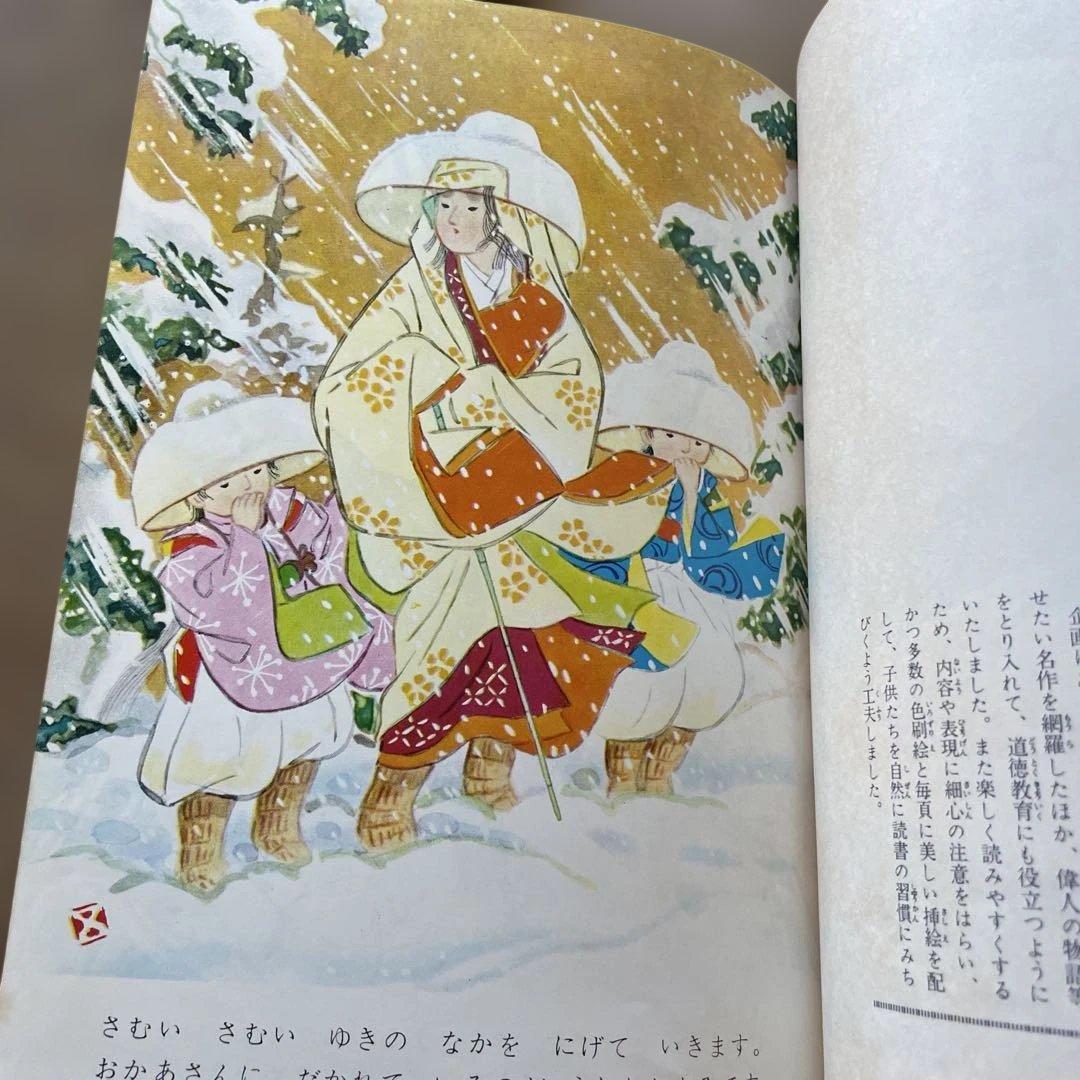 さむい さむい ゆきの なかを にげて いきます。
おかあさんに だかれて
せたい名作を網羅したほか、偉人の物語等
をとり入れて、道徳教育にも役立つように
いたしました。また楽しく読みやすくする
ため、内容や表現に細心の注意をはらい、
かつ多数の色刷絵と毎頁に美しい挿絵を配
して、子供たちを自然に読書の習慣にみち
びくよう工夫しました。